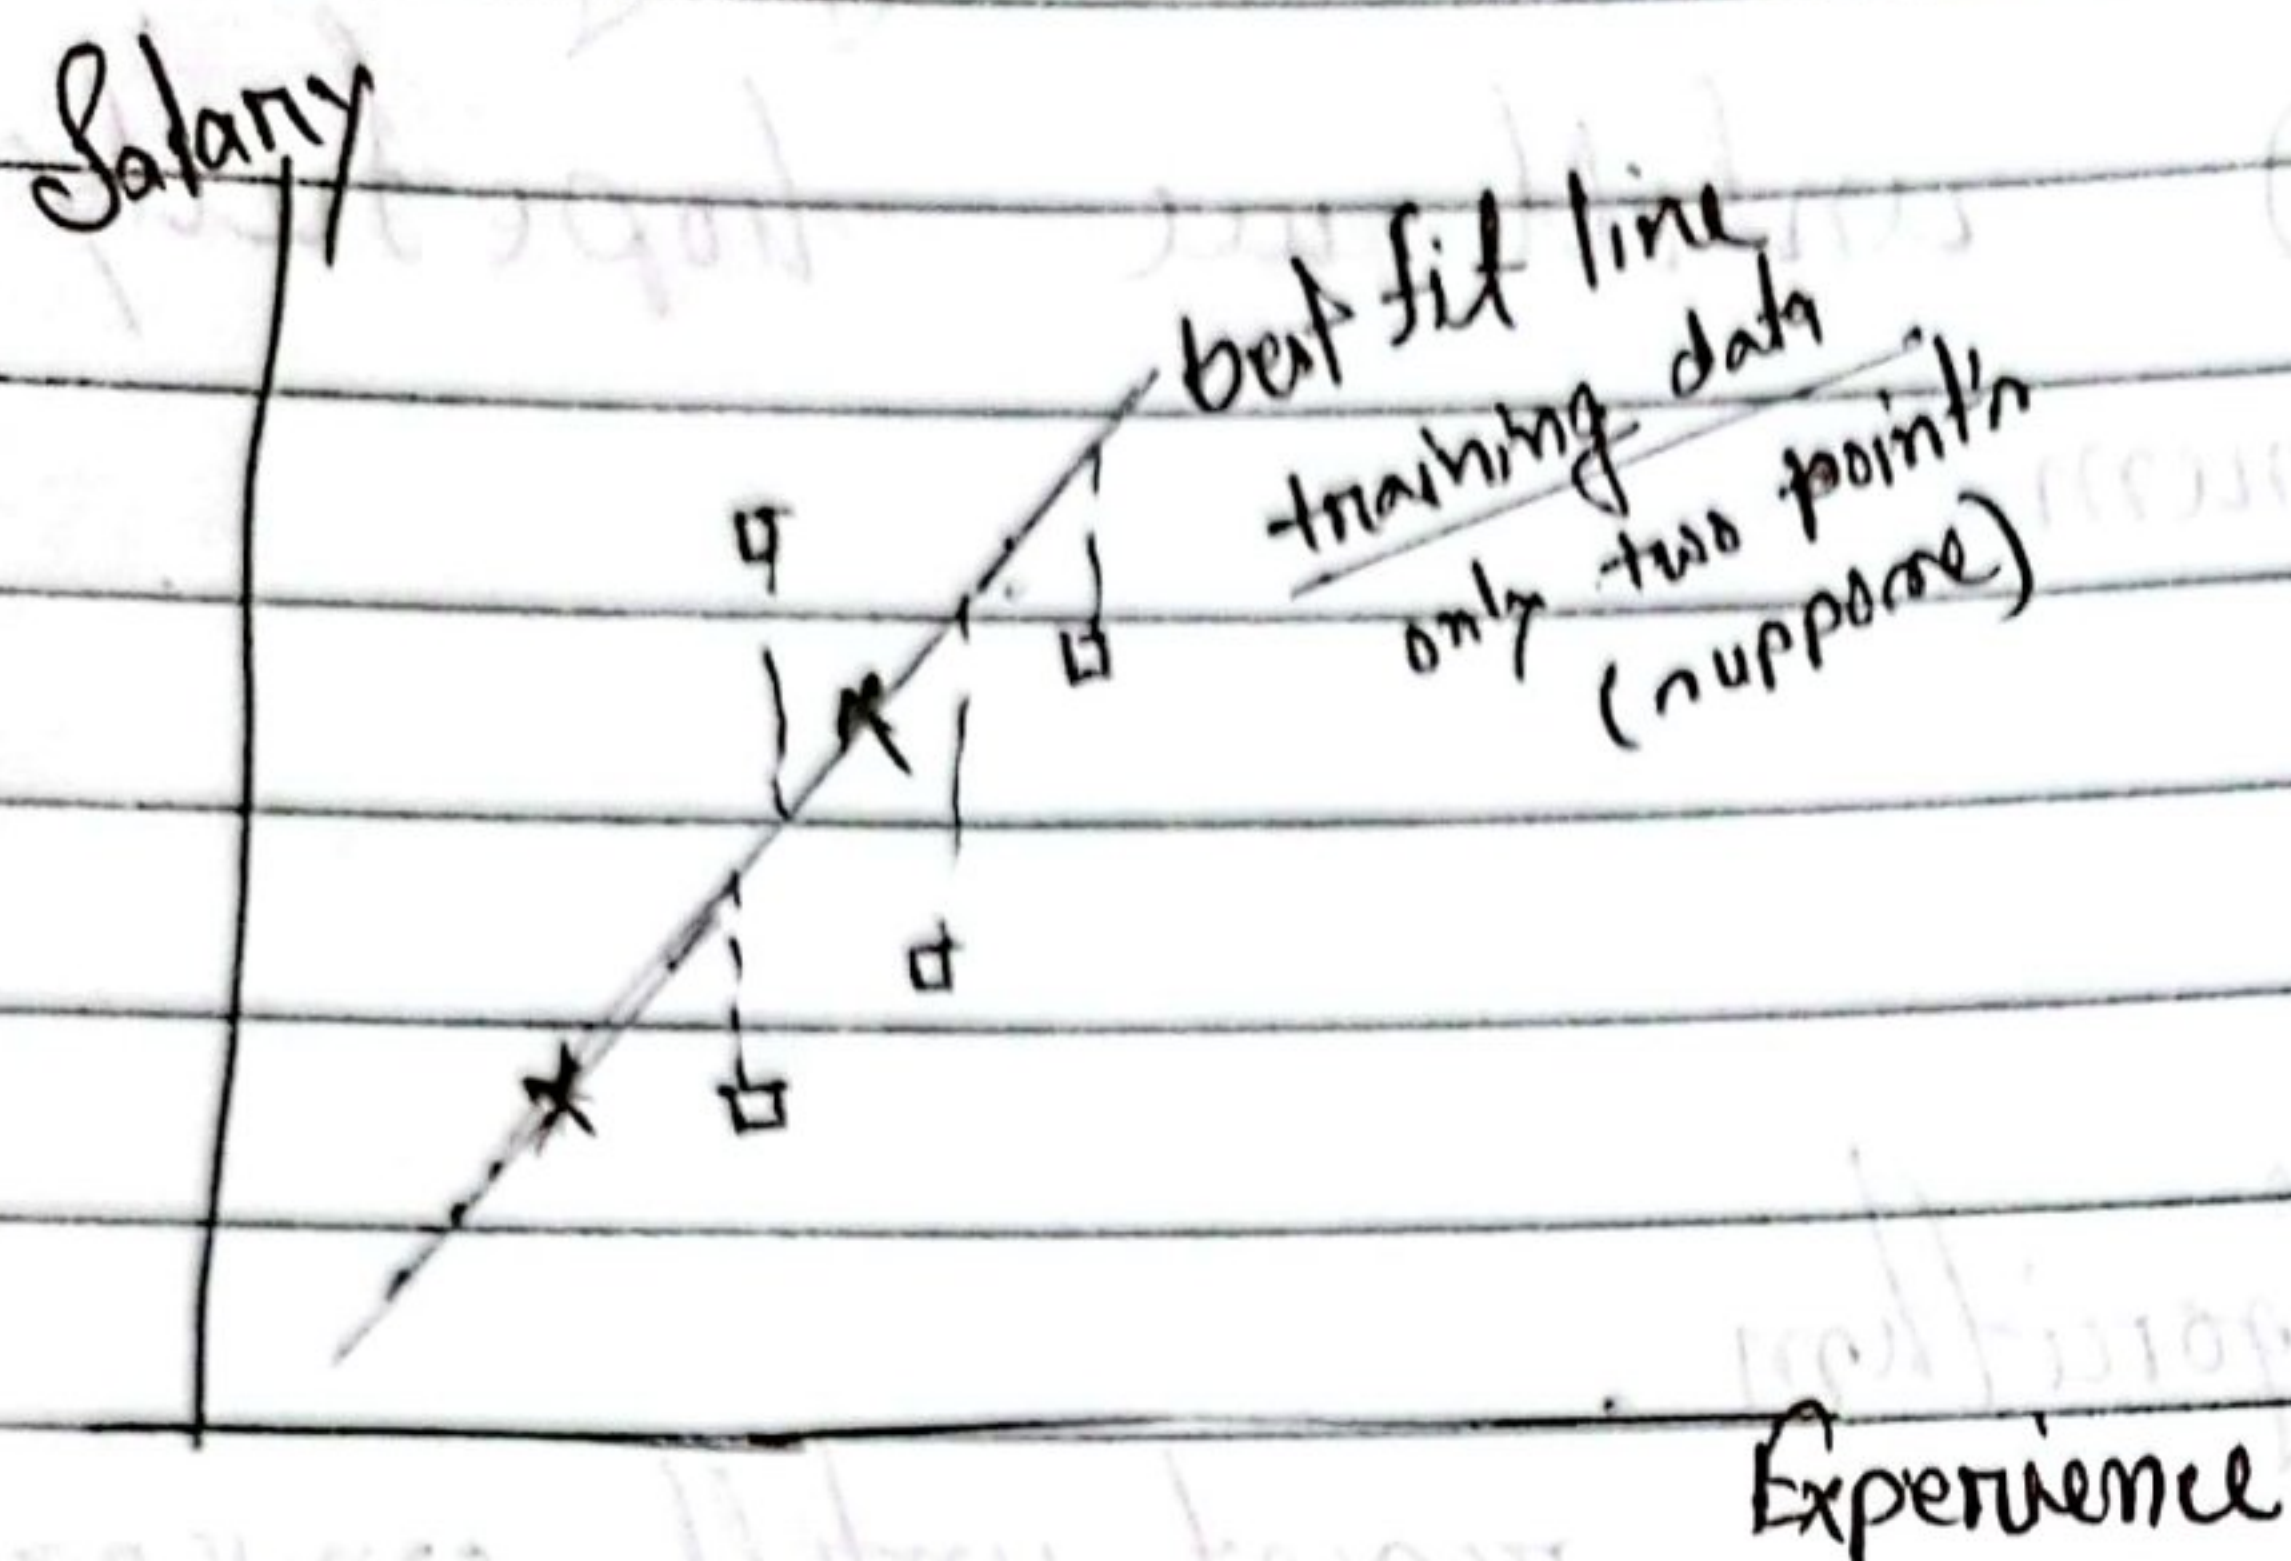 Salary
best fit line
training data
only two point's
(suppose)
Experience